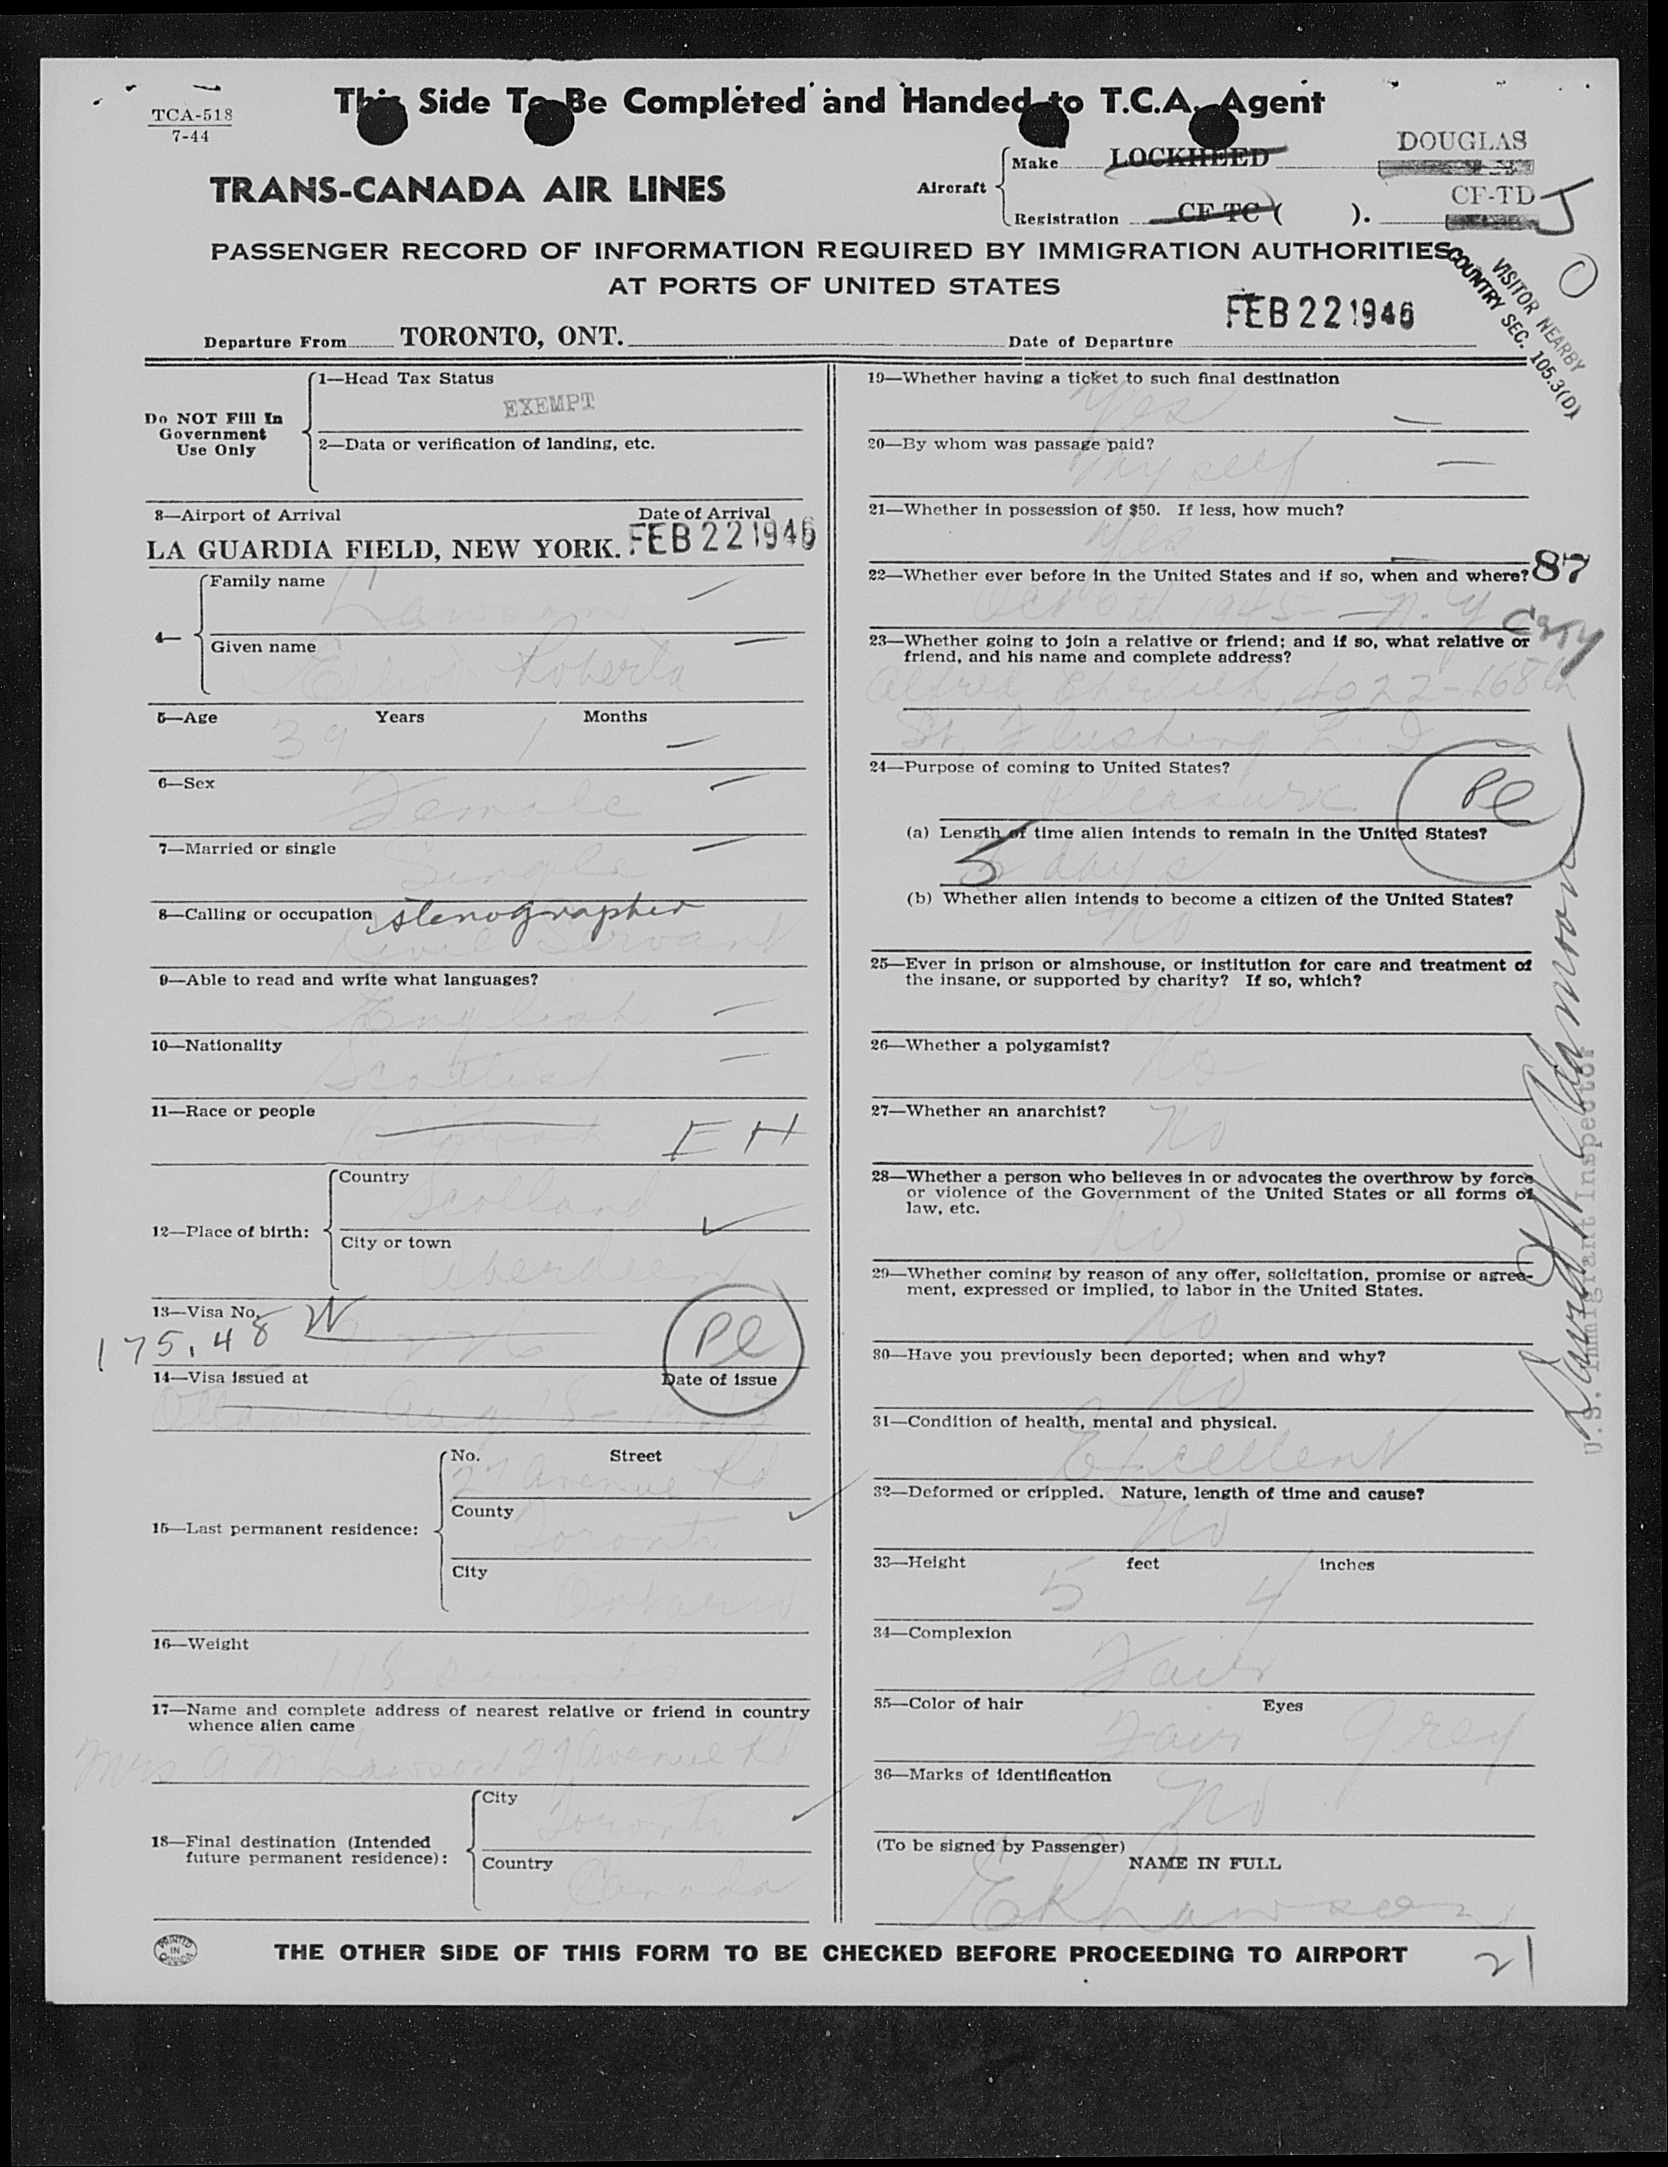 This Side To Be Completed and Handed to T.C.A. Agent
TCA-518
7-44
DOUGLAS
Aircraft
Make LOCKHEED
TRANS-CANADA AIR LINES
CF-TD J
Registration CF-TC ( ).
PASSENGER RECORD OF INFORMATION REQUIRED BY IMMIGRATION AUTHORITIES
AT PORTS OF UNITED STATES
VISITOR NEARBY
COUNTRY SEC. 105.3(D)
FEB 22 1946
Departure From TORONTO, ONT. Date of Departure
Do NOT Fill In
Government
Use Only
1—Head Tax Status
EXEMPT
2—Data or verification of landing, etc.
3—Airport of Arrival Date of Arrival
LA GUARDIA FIELD, NEW YORK. FEB 22 1946
4—
Family name
Lawson
Given name
Roberta
5—Age 39 Years 1 Months
6—Sex
Female
7—Married or single
Single
8—Calling or occupation stenographer
Civil Servant
9—Able to read and write what languages?
English
10—Nationality
Scottish
11—Race or people
E H
12—Place of birth:
Country
Scotland
City or town
Aberdeen
13—Visa No.
175.48 W
Pl
14—Visa issued at Date of issue
Ottawa Aug
15—Last permanent residence:
No. Street
27 Avenue Rd
County
Toronto
City
Ontario
16—Weight
118 pounds
17—Name and complete address of nearest relative or friend in country
whence alien came
Mrs A M Lawson 27 Avenue Rd
18—Final destination (Intended
future permanent residence):
City
Toronto
Country
Canada
19—Whether having a ticket to such final destination
Yes
20—By whom was passage paid?
Myself
21—Whether in possession of $50. If less, how much?
Yes
87
22—Whether ever before in the United States and if so, when and where?
Oct 6th 1945 - N.Y. City
23—Whether going to join a relative or friend; and if so, what relative or
friend, and his name and complete address?
Alfred Ehrlich, 4022-168th
St. Flushing L. I.
24—Purpose of coming to United States?
Pleasure
Pl
(a) Length of time alien intends to remain in the United States?
5 days
(b) Whether alien intends to become a citizen of the United States?
No
25—Ever in prison or almshouse, or institution for care and treatment of
the insane, or supported by charity? If so, which?
No
26—Whether a polygamist?
No
27—Whether an anarchist?
No
28—Whether a person who believes in or advocates the overthrow by force
or violence of the Government of the United States or all forms of
law, etc.
No
29—Whether coming by reason of any offer, solicitation, promise or agree-
ment, expressed or implied, to labor in the United States.
No
30—Have you previously been deported; when and why?
No
31—Condition of health, mental and physical.
Excellent
32—Deformed or crippled. Nature, length of time and cause?
No
33—Height 5 feet 4 inches
34—Complexion
Fair
35—Color of hair Eyes
Fair Grey
36—Marks of identification
No
(To be signed by Passenger)
NAME IN FULL
E R Lawson
U.S. Immigrant Inspector
PRINTED IN CANADA
THE OTHER SIDE OF THIS FORM TO BE CHECKED BEFORE PROCEEDING TO AIRPORT
21